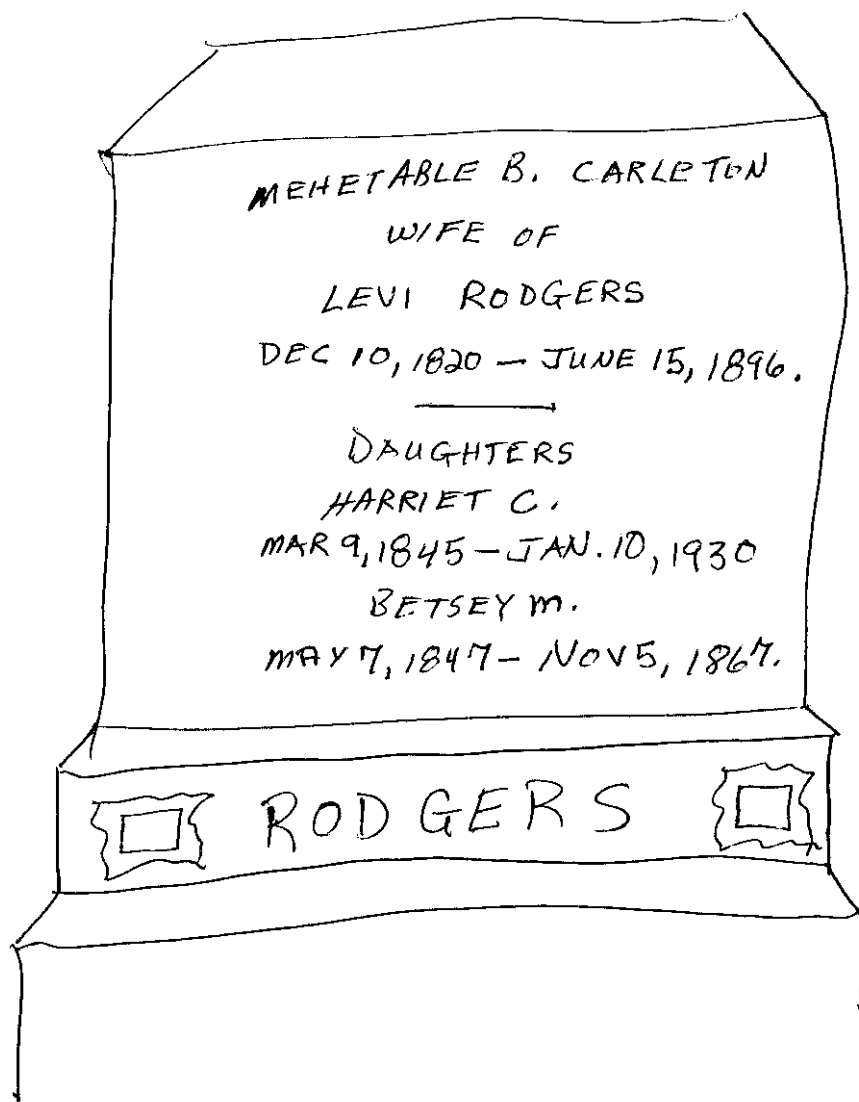 MEHETABLE B. CARLETON
WIFE OF
LEVI RODGERS
DEC 10, 1820 – JUNE 15, 1896.
DAUGHTERS
HARRIET C.
MAR 9, 1845 – JAN. 10, 1930
BETSEY M.
MAY 7, 1847 – NOV 5, 1867.
RODGERS